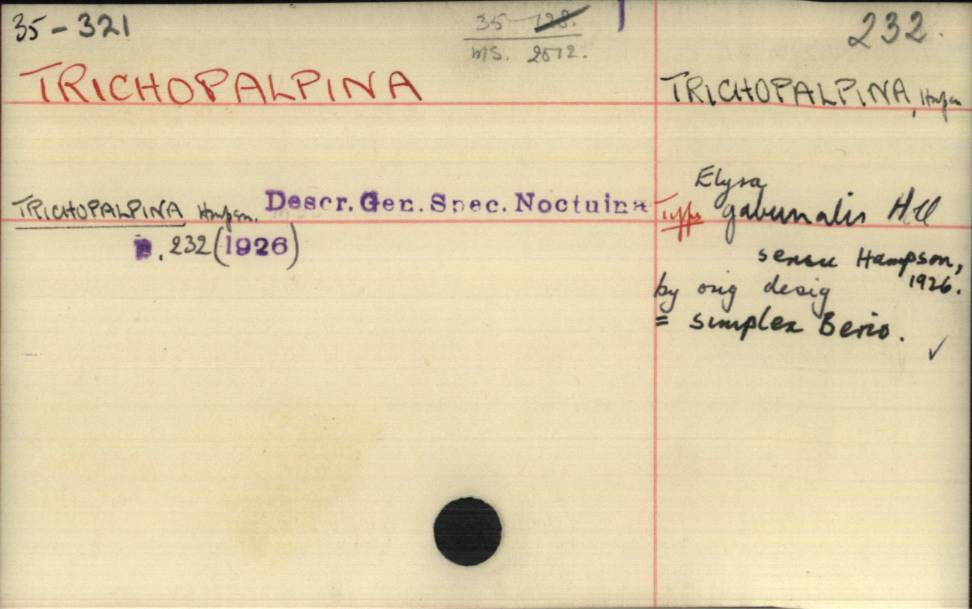 35-321
35-128.
MS. 2512.
232.
TRICHOPALPINA
TRICHOPALPINA, Hmpsn
TRICHOPALPINA, Hmpsn. Descr. Gen. Spec. Noctuina
p. 232 (1926)
Elyra
Type gabunalis Hll
sensu Hampson,
1926.
by orig desig
= simplex Berio. ✓